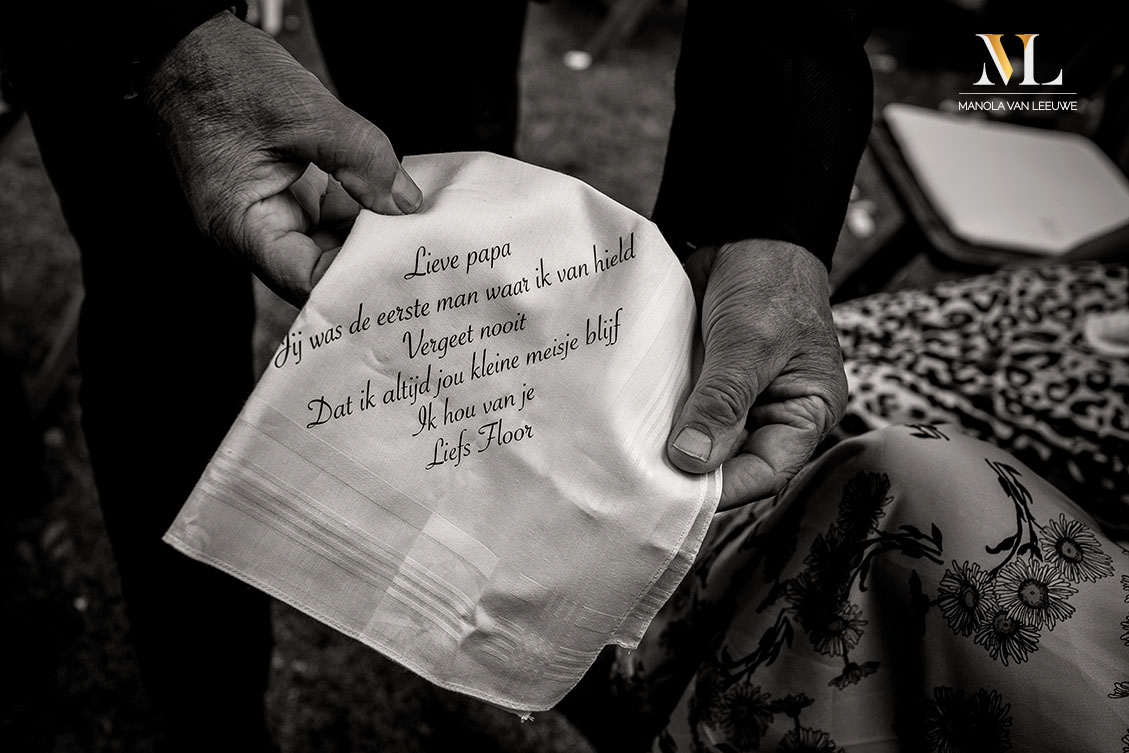 ML
MANOLA VAN LEEUWE
Lieve papa
Jij was de eerste man waar ik van hield
Vergeet nooit
Dat ik altijd jou kleine meisje blijf
Ik hou van je
Liefs Floor